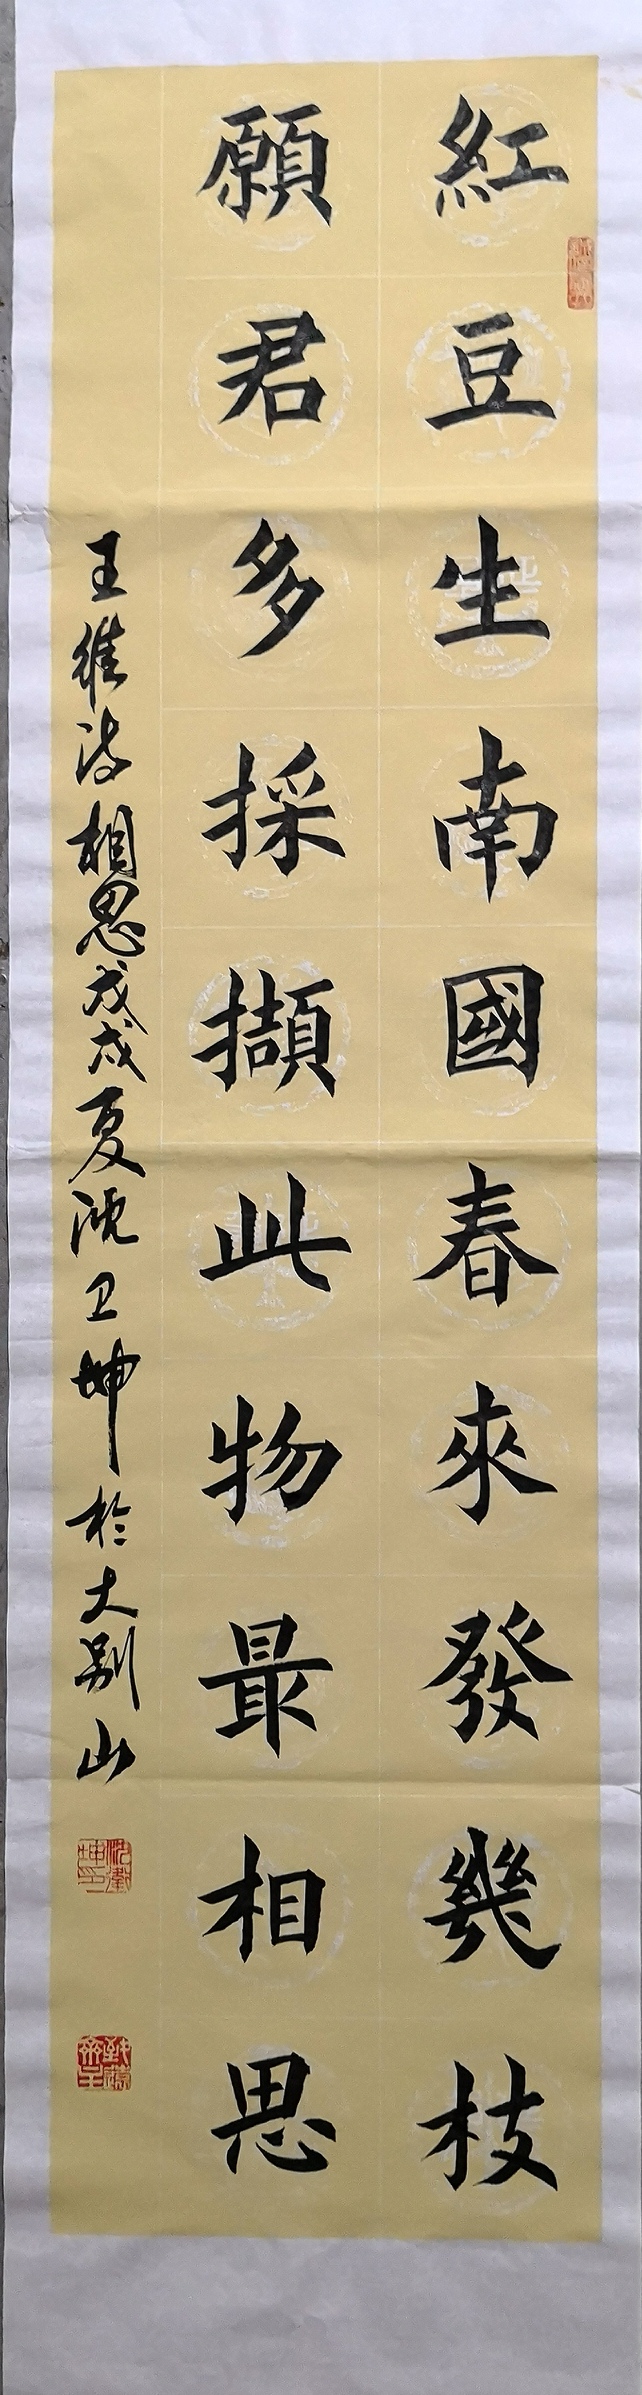 紅豆生南國春來發幾枝
願君多採擷此物最相思
王維詩相思戊戌夏沈卫坤於大别山